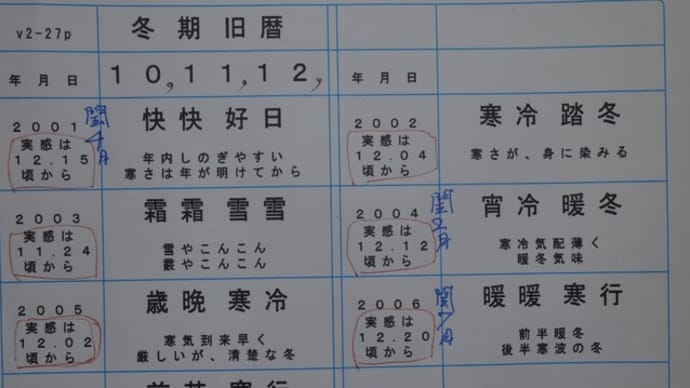 v2-27p
冬期旧暦
年月日
10,11,12,
年月日
2001
閏4月
実感は
12.15
頃から
快快好日
年内しのぎやすい
寒さは年が明けてから
2002
実感は
12.04
頃から
寒冷踏冬
寒さが、身に染みる
2003
実感は
11.24
頃から
霜霜雪雪
雪やこんこん
霰やこんこん
2004
閏2月
実感は
12.12
頃から
宵冷暖冬
寒冷気配薄く
暖冬気味
2005
実感は
12.02
頃から
歳晩寒冷
寒気到来早く
厳しいが、清楚な冬
2006
閏7月
実感は
12.20
頃から
暖暖寒行
前半暖冬
後半寒波の冬